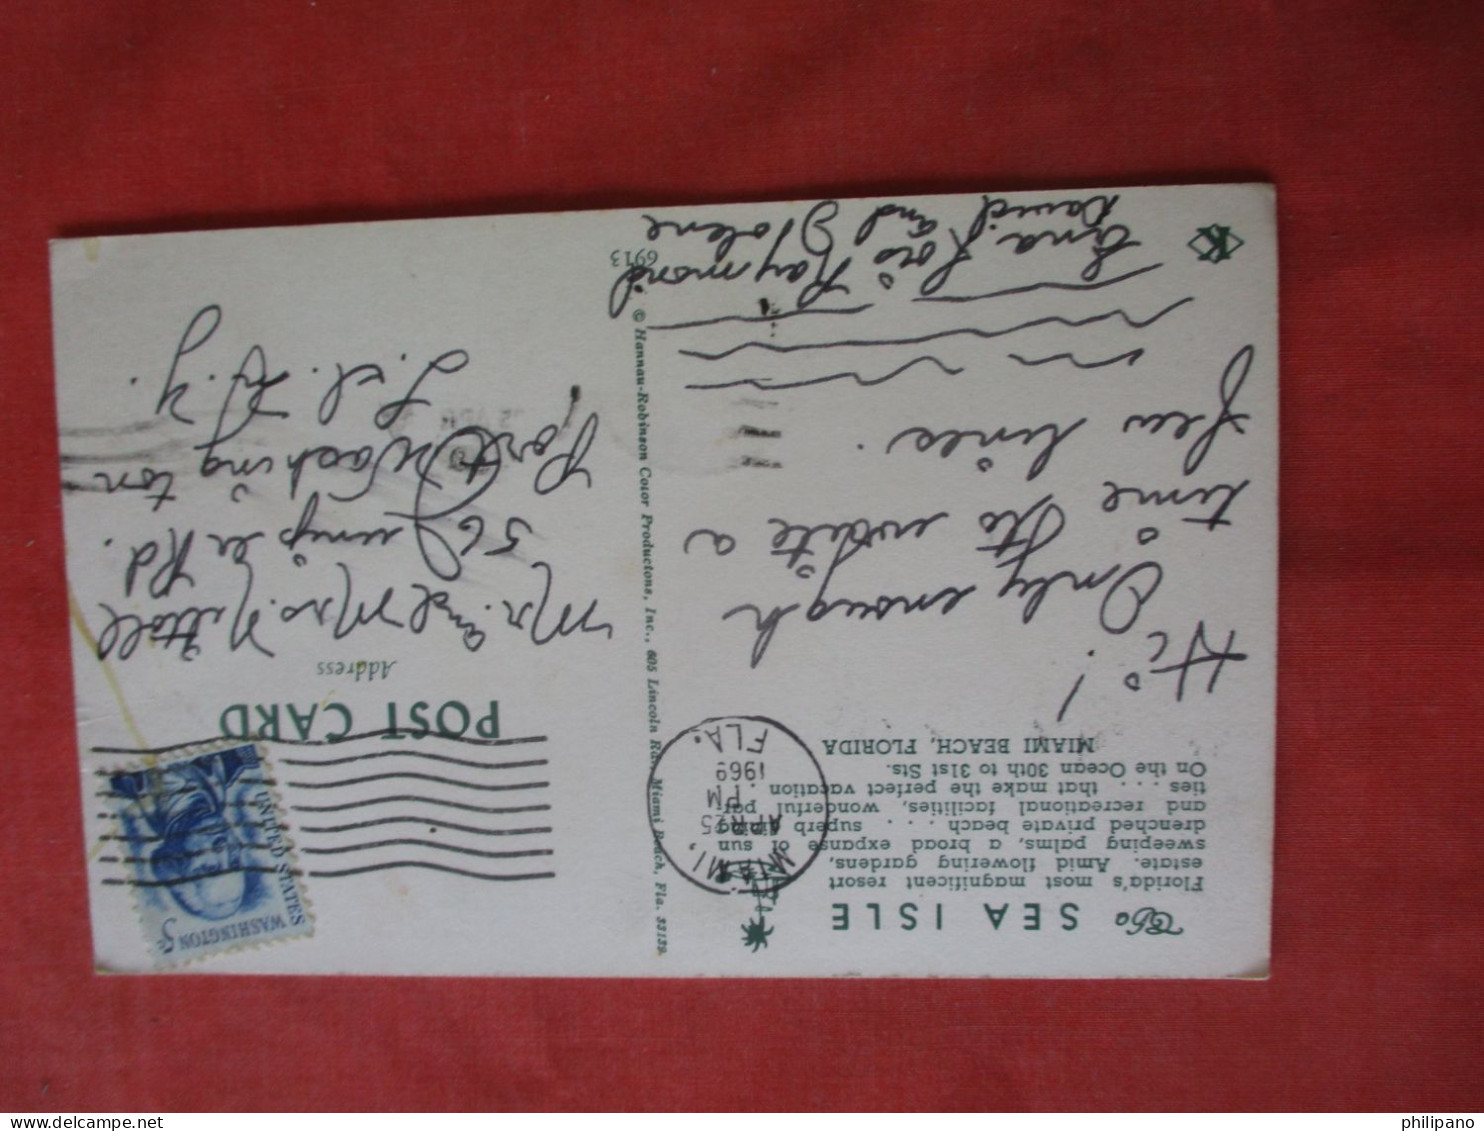 The SEA ISLE
Florida's most magnificent resort
estate. Amid flowering gardens,
sweeping palms, a broad expanse of sun
drenched private beach . . . . superb dining
and recreational facilities, wonderful par
ties . . . . that make the perfect vacation .
On the Ocean 30th to 31st Sts.
MIAMI BEACH, FLORIDA
Hi!
Only enough
time to write a
few lines.
Raymond
David and
K
6913
© Hannau-Robinson Color Productons, Inc., 605 Lincoln Rd., Miami Beach, Fla. 33139.
MIAMI,
APR 25
PM
1969
FLA.
WASHINGTON 5c
UNITED STATES
POST CARD
Address
Mr. and Mrs.
56 Juniper Rd.
Port Washington
L.I. N.Y.
philipano